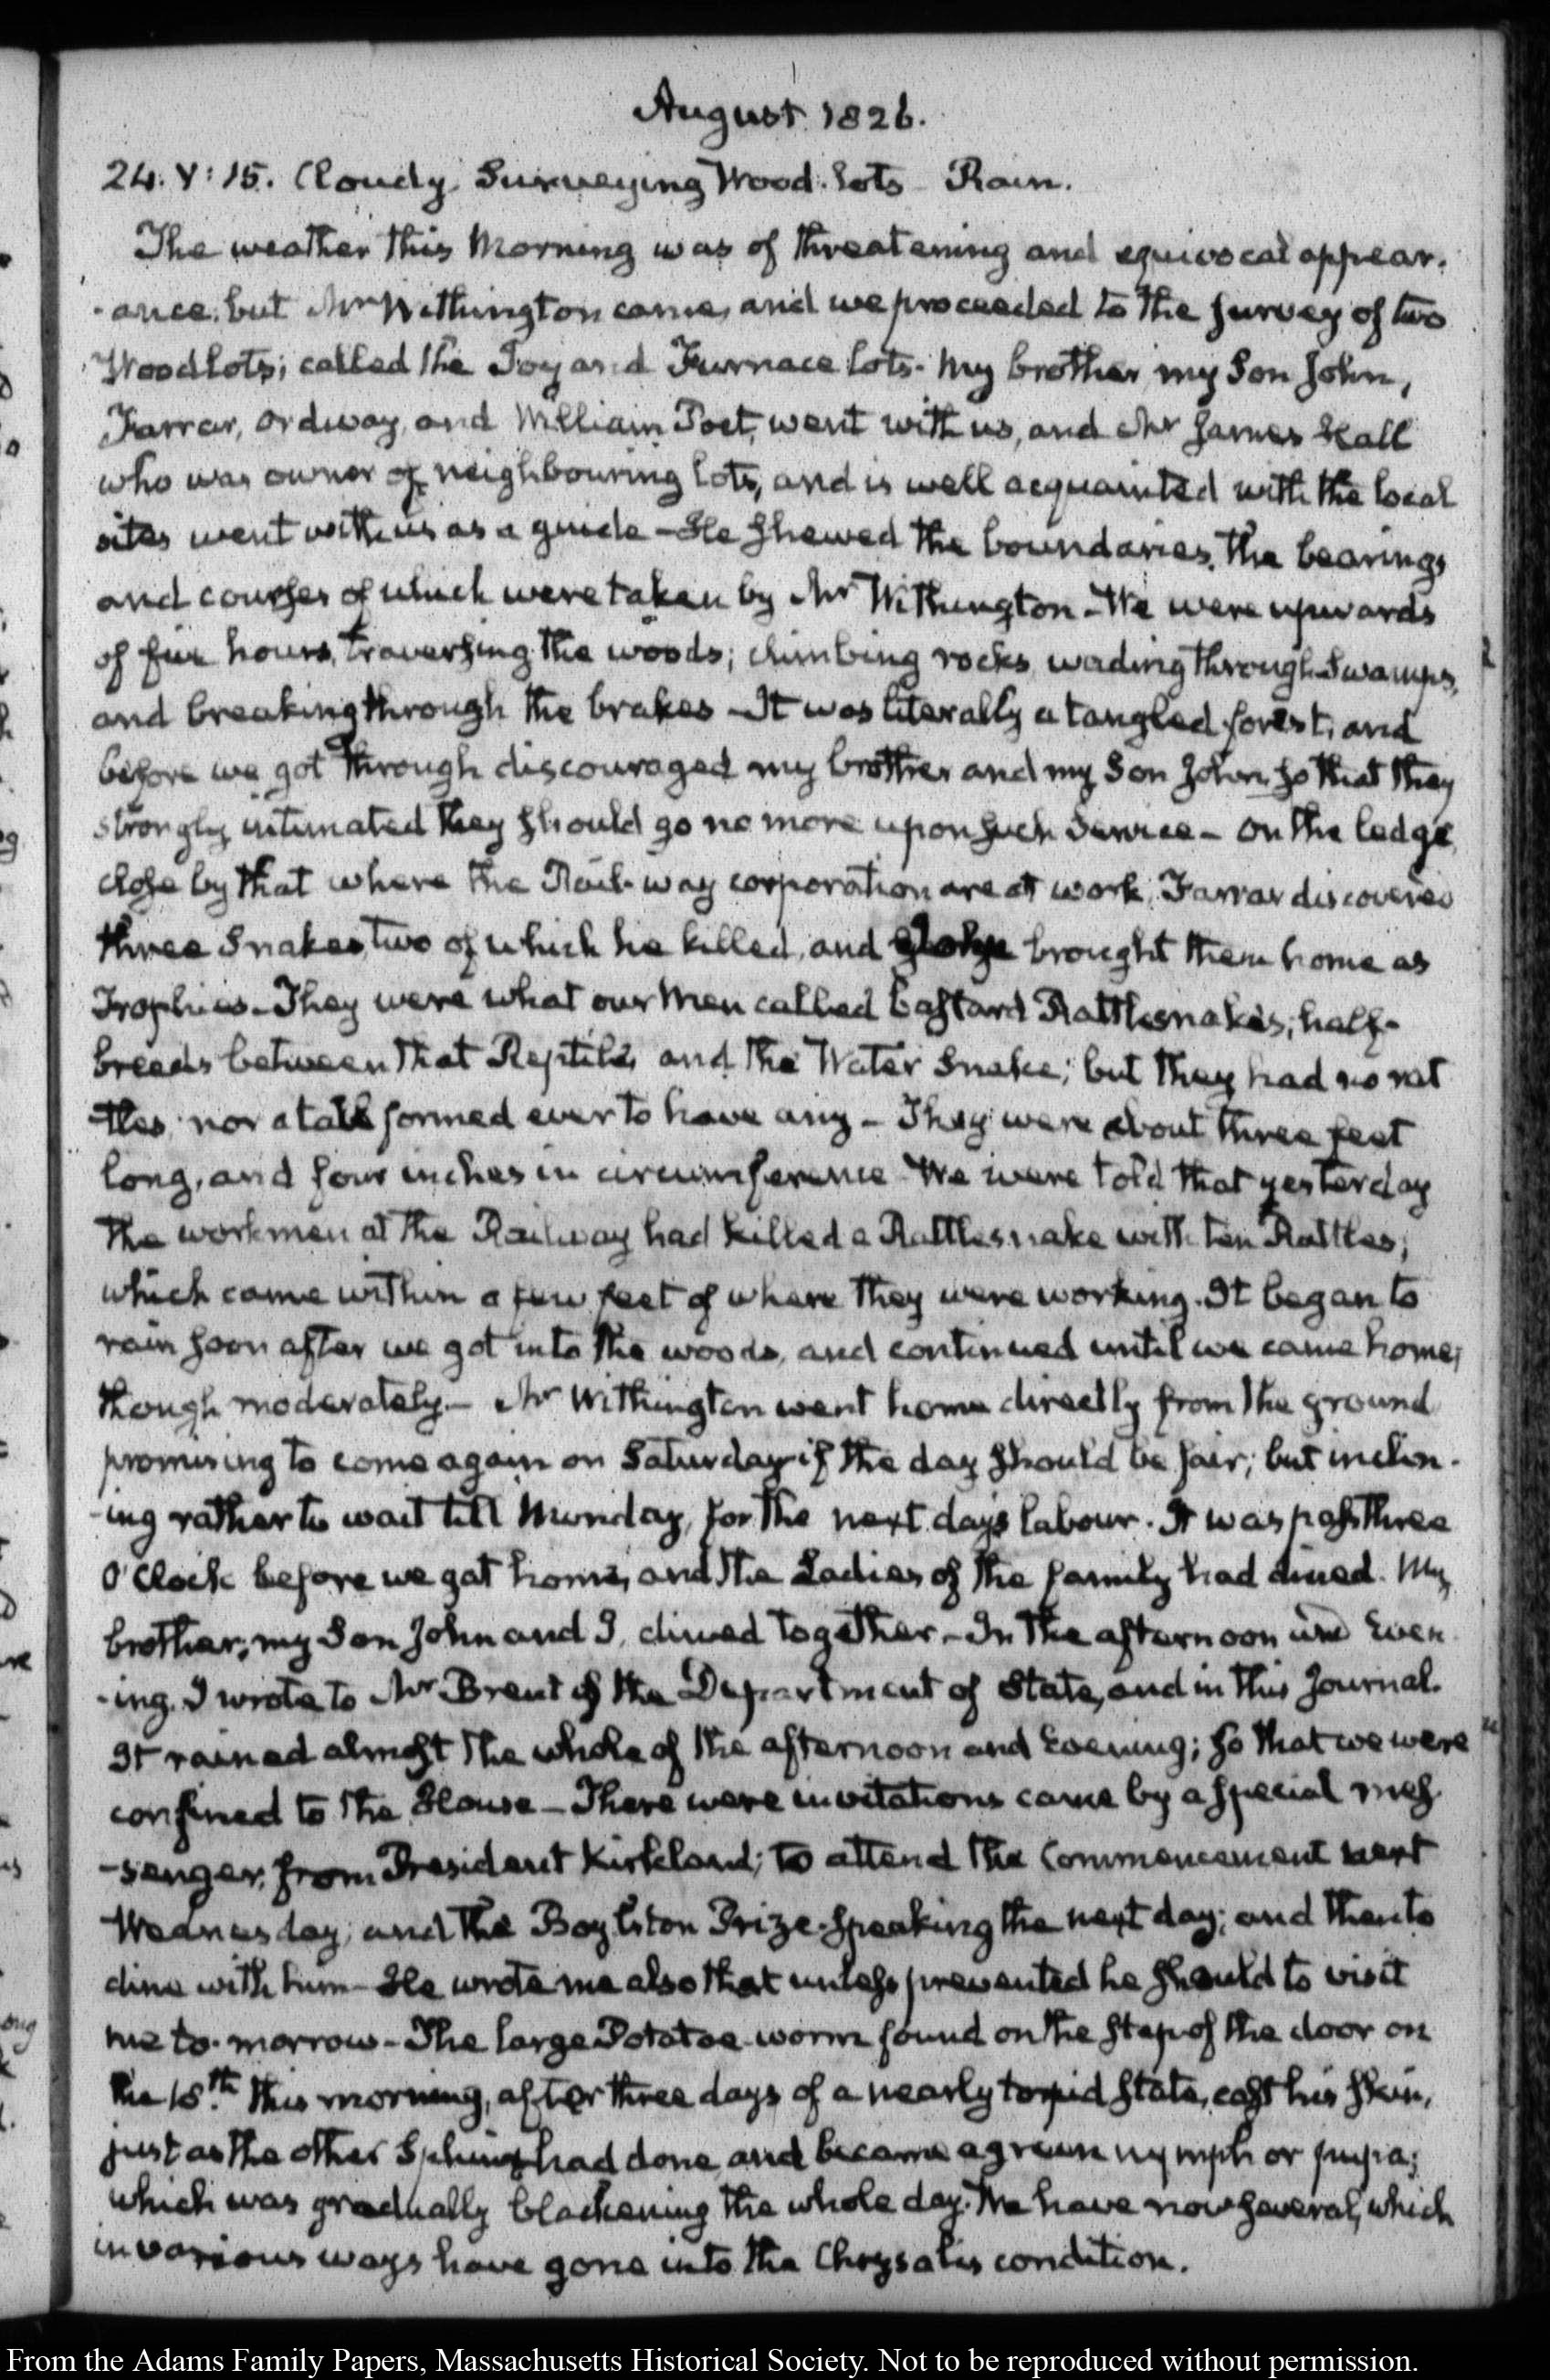 August 1826.
24. V:15. Cloudy. Surveying Wood-lots - Rain.
The weather this Morning was of threatening and equivocal appear-
-ance, but Mr Withington came, and we proceeded to the survey of two
Woodlots; called the Joy and Furnace lots. My brother, my Son John,
Farrar, Ordway, and William Post, went with us, and Mr James Hall
who was owner of neighbouring lots, and is well acquainted with the local
sites went with us as a guide - He shewed the boundaries, the bearings
and courses of which were taken by Mr Withington - We were upwards
of five hours, traversing the woods; climbing rocks, wading through Swamps,
and breaking through the brakes - It was literally a tangled forest, and
before we got through discouraged my brother and my Son John, so that they
strongly intimated they should go no more upon such Service - On the ledge
close by that where the Rail-way corporation are at work, Farrar discovered
three Snakes, two of which he killed, and brought them home as
Trophies - They were what our Men called bastard Rattlesnakes, half-
breeds between that Reptile, and the Water Snake; but they had no rat
tles, nor a tail formed ever to have any - They were about three feet
long, and four inches in circumference - We were told that yesterday
the workmen at the Railway had killed a Rattlesnake with ten Rattles;
which came within a few feet of where they were working. It began to
rain soon after we got into the woods, and continued until we came home;
though moderately - Mr Withington went home directly from the ground
promising to come again on Saturday if the day should be fair; but inclin-
-ing rather to wait till Munday, for the next day's labour. It was past three
O'Clock before we got home, and the Ladies of the family had dined. My
brother, my Son John and I, dined together - In the afternoon and Even
-ing, I wrote to Mr Brent of the Department of State, and in this Journal.
It rained almost the whole of the afternoon and Evening; so that we were
confined to the House - There were invitations came by a special mes-
-senger, from President Kirkland; to attend the Commencement next
Wednesday; and the Boylston Prize-speaking the next day; and then to
dine with him - He wrote me also that unless prevented he should to visit
me to-morrow - The large Potatoe-worm found on the step of the door on
the 18th. this morning, after three days of a nearly torpid state, cast his skin,
just as the other Sphinx had done, and became a green nymph or pupa;
which was gradually blackening the whole day. We have now several, which
in various ways have gone into the Chrysalis condition.
From the Adams Family Papers, Massachusetts Historical Society. Not to be reproduced without permission.